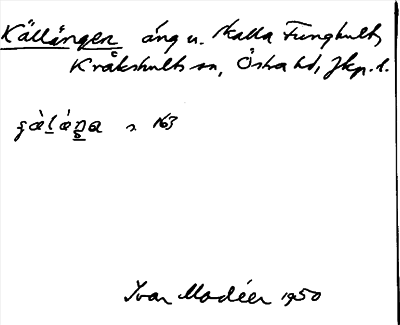 Källängen äng u. Stalla Funghult,
Kråkshults sn, Östra hd, Jkp. l.
s. 163
Ivar Modéer 1950